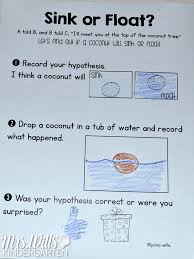 Sink or Float?
A told B, and B told C, "I'll meet you at the top of the coconut tree"
Let's find out if a coconut will sink or float
1 Record your hypothesis.
I think a coconut will
SINK
FLOAT
2 Drop a coconut in a tub of water and record
what happened.
3 Was your hypothesis correct or were you
surprised?
Mrs. Wills
KINDERGARTEN